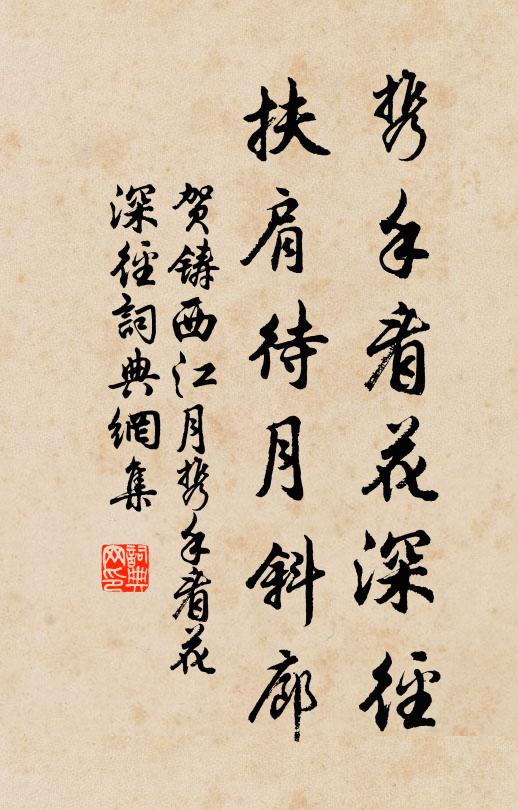 携手看花深徑
扶肩待月斜廊
賀鑄西江月携手看花
深徑詞典網集
詞典網印